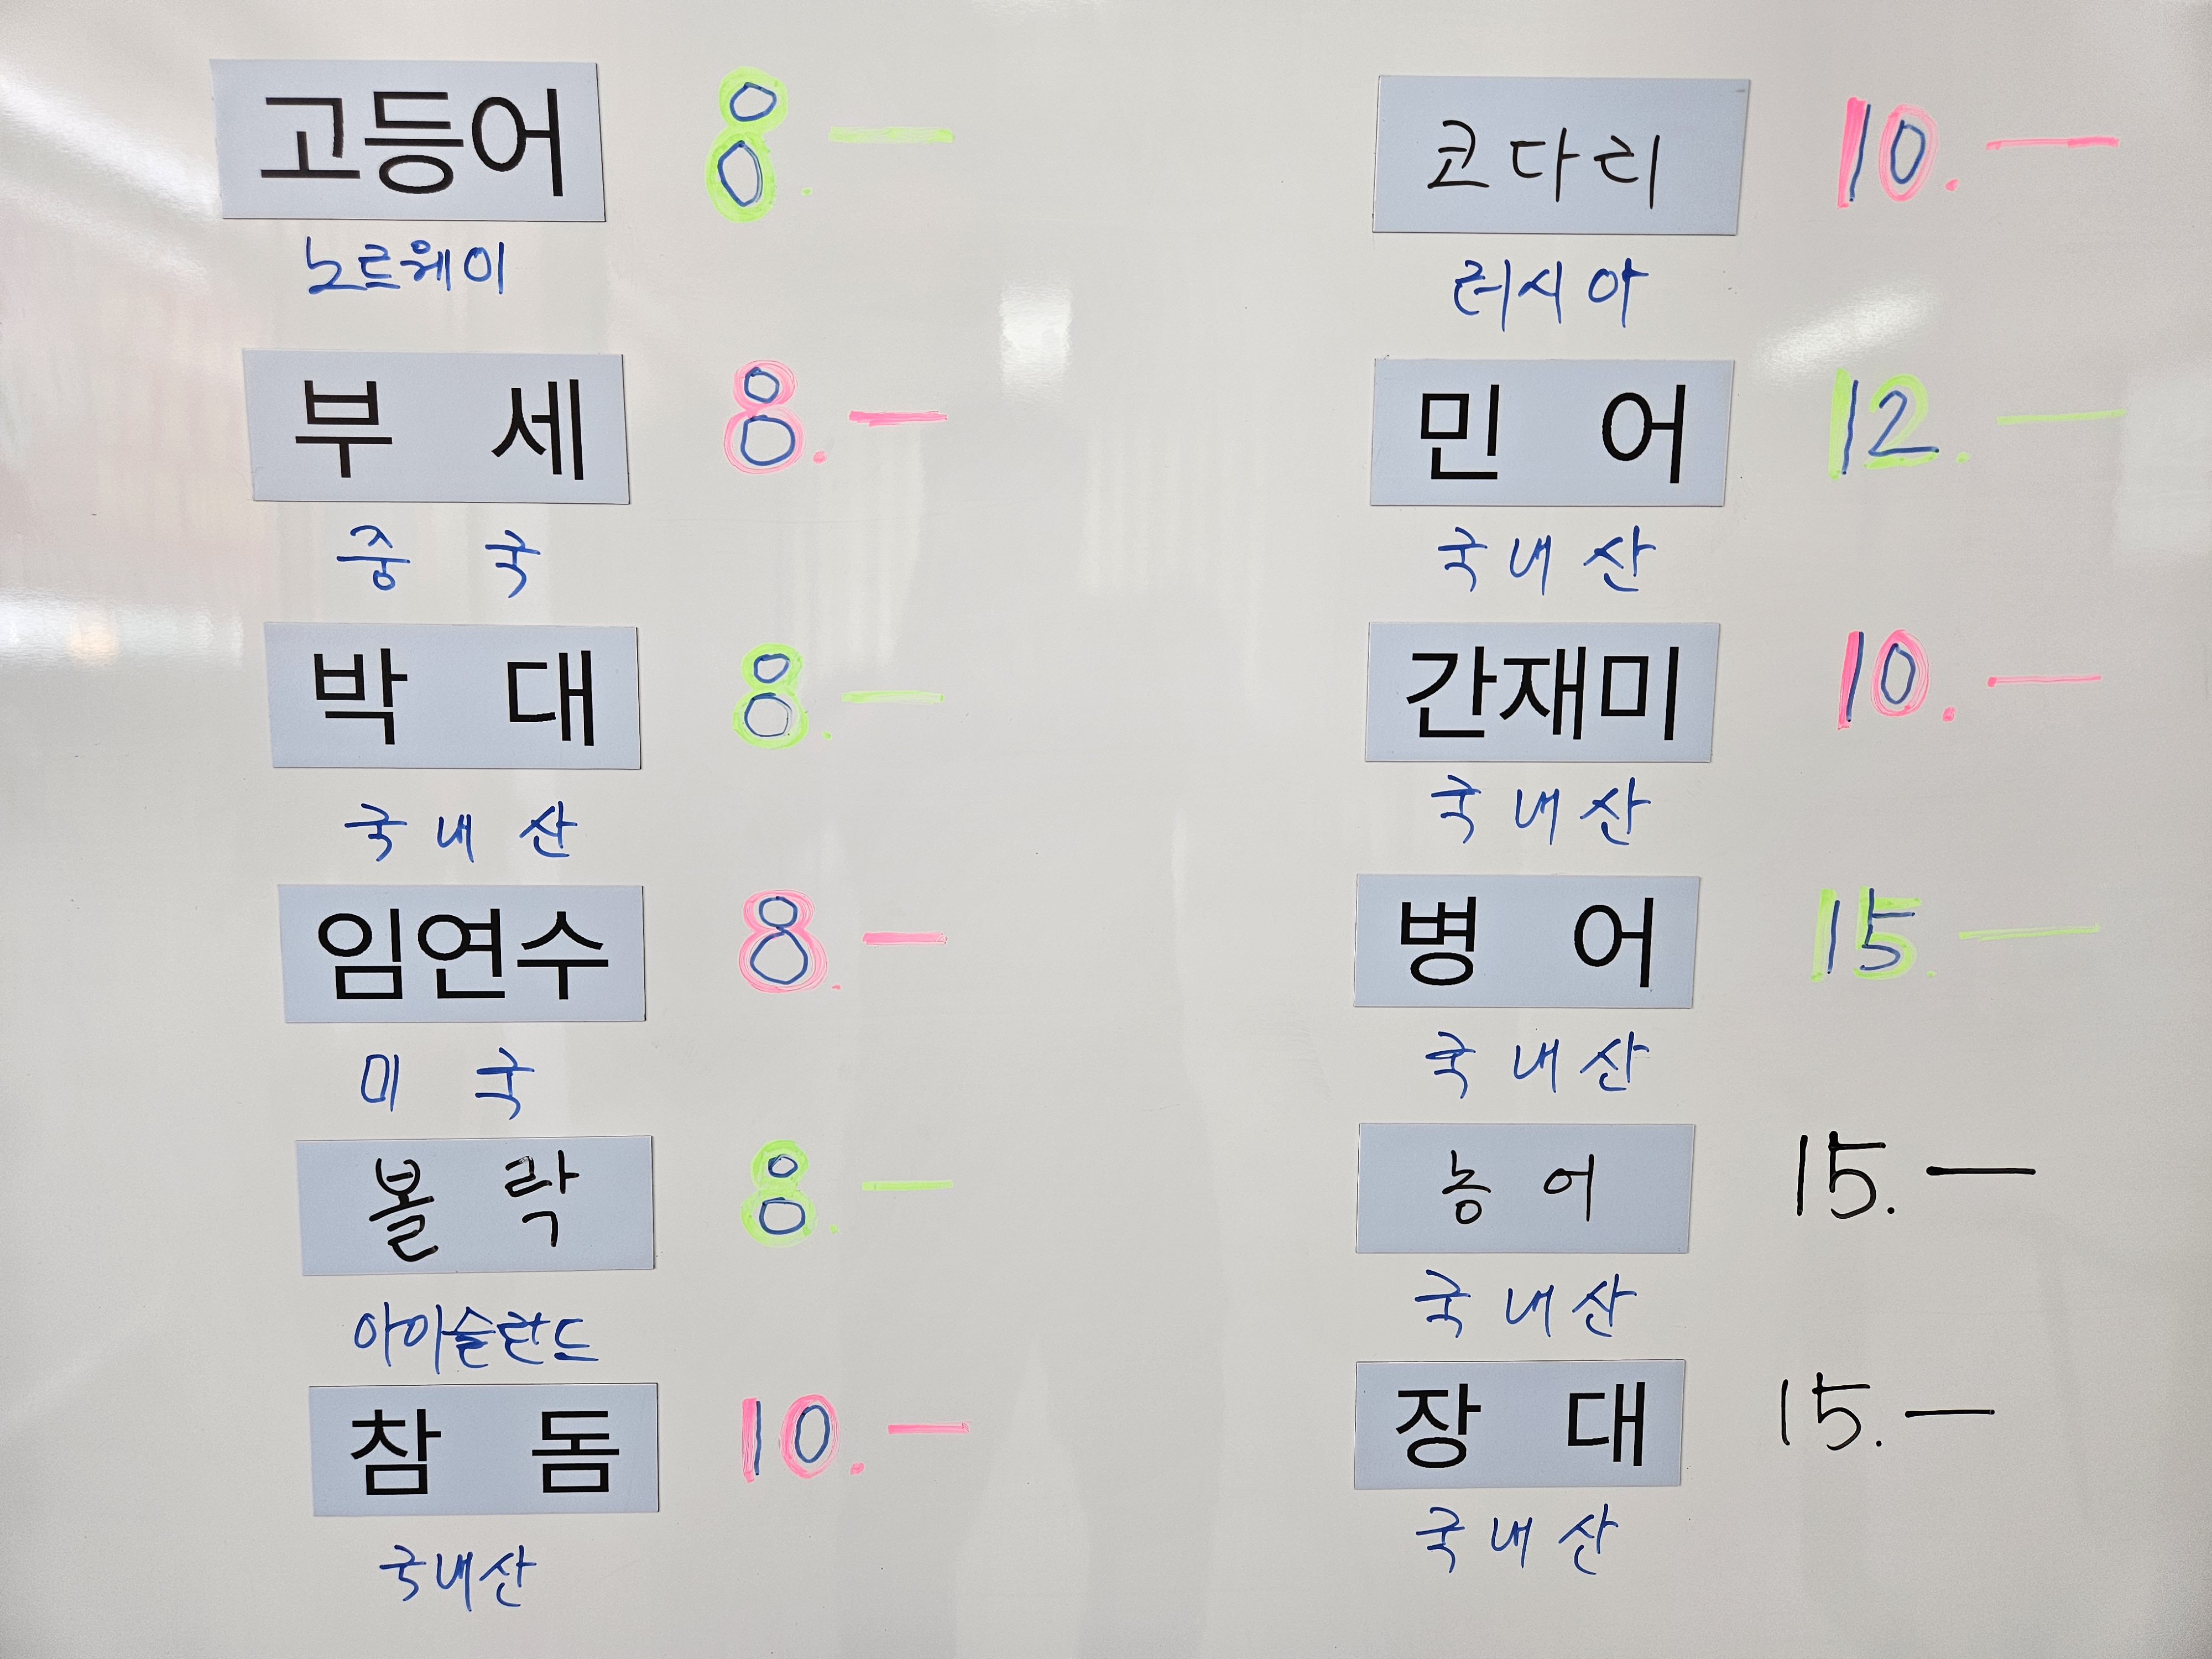 고등어 8.—
노르웨이
부 세 8.—
중 국
박 대 8.—
국 내 산
임연수 8.—
미 국
볼 락 8.—
아이슬란드
참 돔 10.—
국내산
코다리 10.—
러시아
민 어 12.—
국내산
간재미 10.—
국내산
병 어 15.—
국내산
농어 15.—
국내산
장 대 15.—
국내산